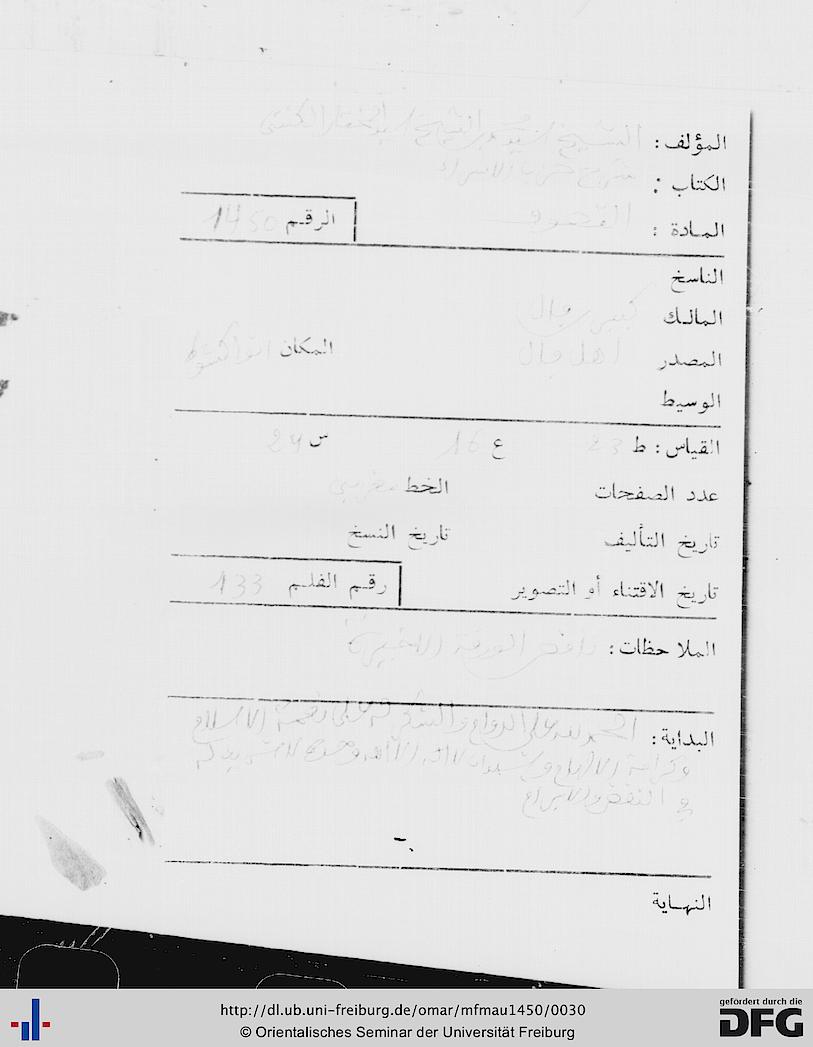 المؤلف : الشيخ سيد محمد بن الشيخ سيد المختار الكنتي
الكتاب :
المادة : التصوف الرقم 1450
الناسخ
المالك
المصدر المكان انواكشوط
الوسيط
القياس : ط 23 ع 16 س 24
عدد الصفحات الخط مغربي
تاريخ التأليف تاريخ النسخ
تاريخ الاقتناء أو التصوير رقم الفلم 133
الملاحظات : ناقص الورقة الاخيرة
البداية : الحمد لله على الدوام والشكر له على نعمة الاسلام
وحده لا شريك له
في النقض والابرام
النهاية
http://dl.ub.uni-freiburg.de/omar/mfmau1450/0030
© Orientalisches Seminar der Universität Freiburg
gefördert durch die
DFG